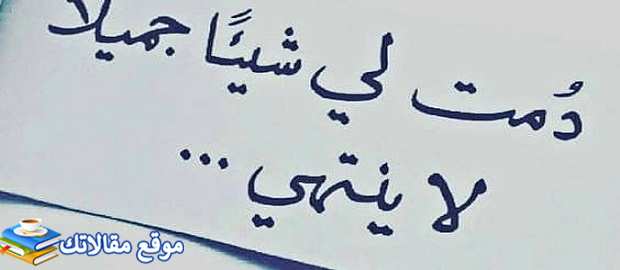 دُمت لي شيئًا جميلًا
لا ينتهي ...
موقع مقالاتك